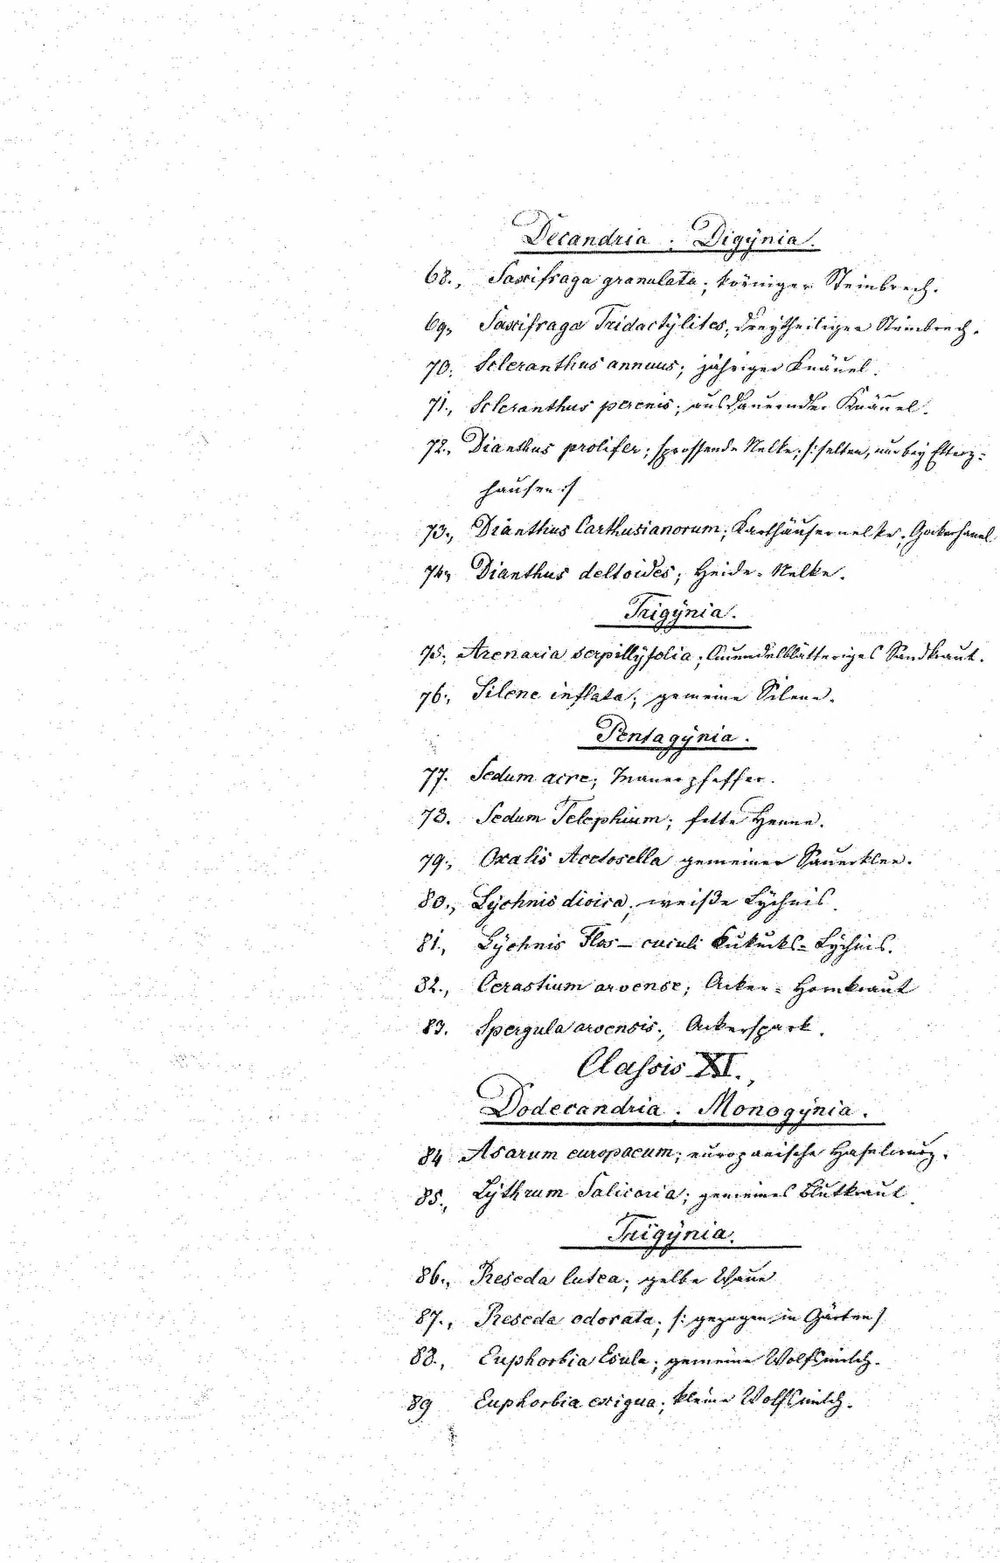 Decandria . Digÿnia.
68., Saxifraga granulata; körniger Steinbrech.
69, Saxifraga Tridactÿlites; dreÿtheiliger Steinbrech.
70. Scleranthus annuus; jähriger Knäuel.
71., Scleranthus perenis; ausdauernder Knäuel.
72., Dianthus prolifer; sprossende Nelke; /: selten, nur beÿ Etterz-
hausen :/
73., Dianthus Carthusianorum; Karthäusernelke,
74, Dianthus deltoides; Heide-Nelke.
Trigÿnia.
75., Arenaria serpillÿfolia; Quendelblätteriges Sandkraut.
76., Silene inflata; gemeine Silene.
Pentagÿnia.
77. Sedum acre; Mauerpfeffer.
78. Sedum Telephium; fette Henne.
79., Oxalis Acetosella gemeiner Sauerklee.
80., Lÿchnis dioica; weiße Lÿchnis.
81., Lÿchnis Flos-cuculi Kukuks-Lÿchnis.
82., Cerastium arvense; Acker-Hornkraut
83. Spergula arvensis., Ackerspark.
Classis XI.,
Dodecandria . Monogÿnia.
84 Asarum europaeum; europaeische Haselwurz.
85., Lÿthrum Salicaria; gemeines Blutkraut.
Trigÿnia.
86., Reseda lutea; gelbe Waue
87., Reseda odorata; /: gezogen in Gärten /
88., Euphorbia Esula; gemeine Wolfsmilch.
89 Euphorbia exigua; kleine Wolfsmilch.